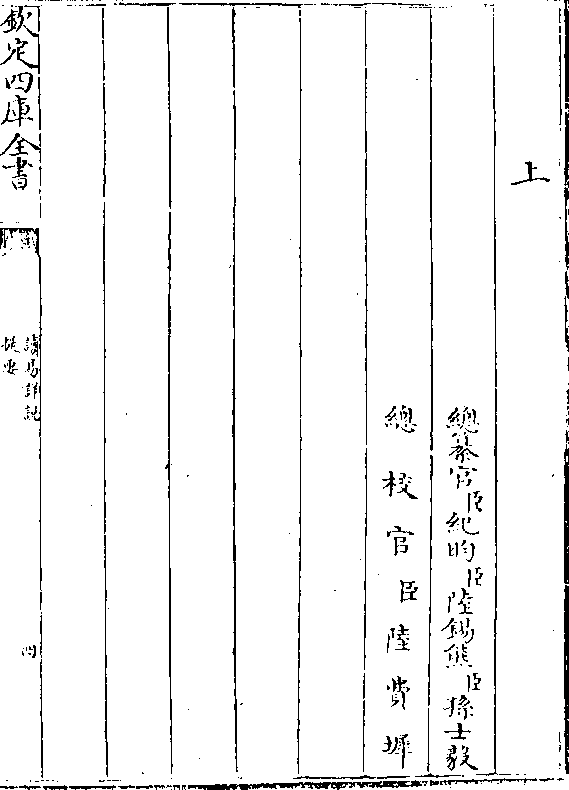 上
總纂官臣紀昀臣陸錫熊臣孫士毅
總校官臣陸費墀
欽定四庫全書
讀易詳說
提要
四